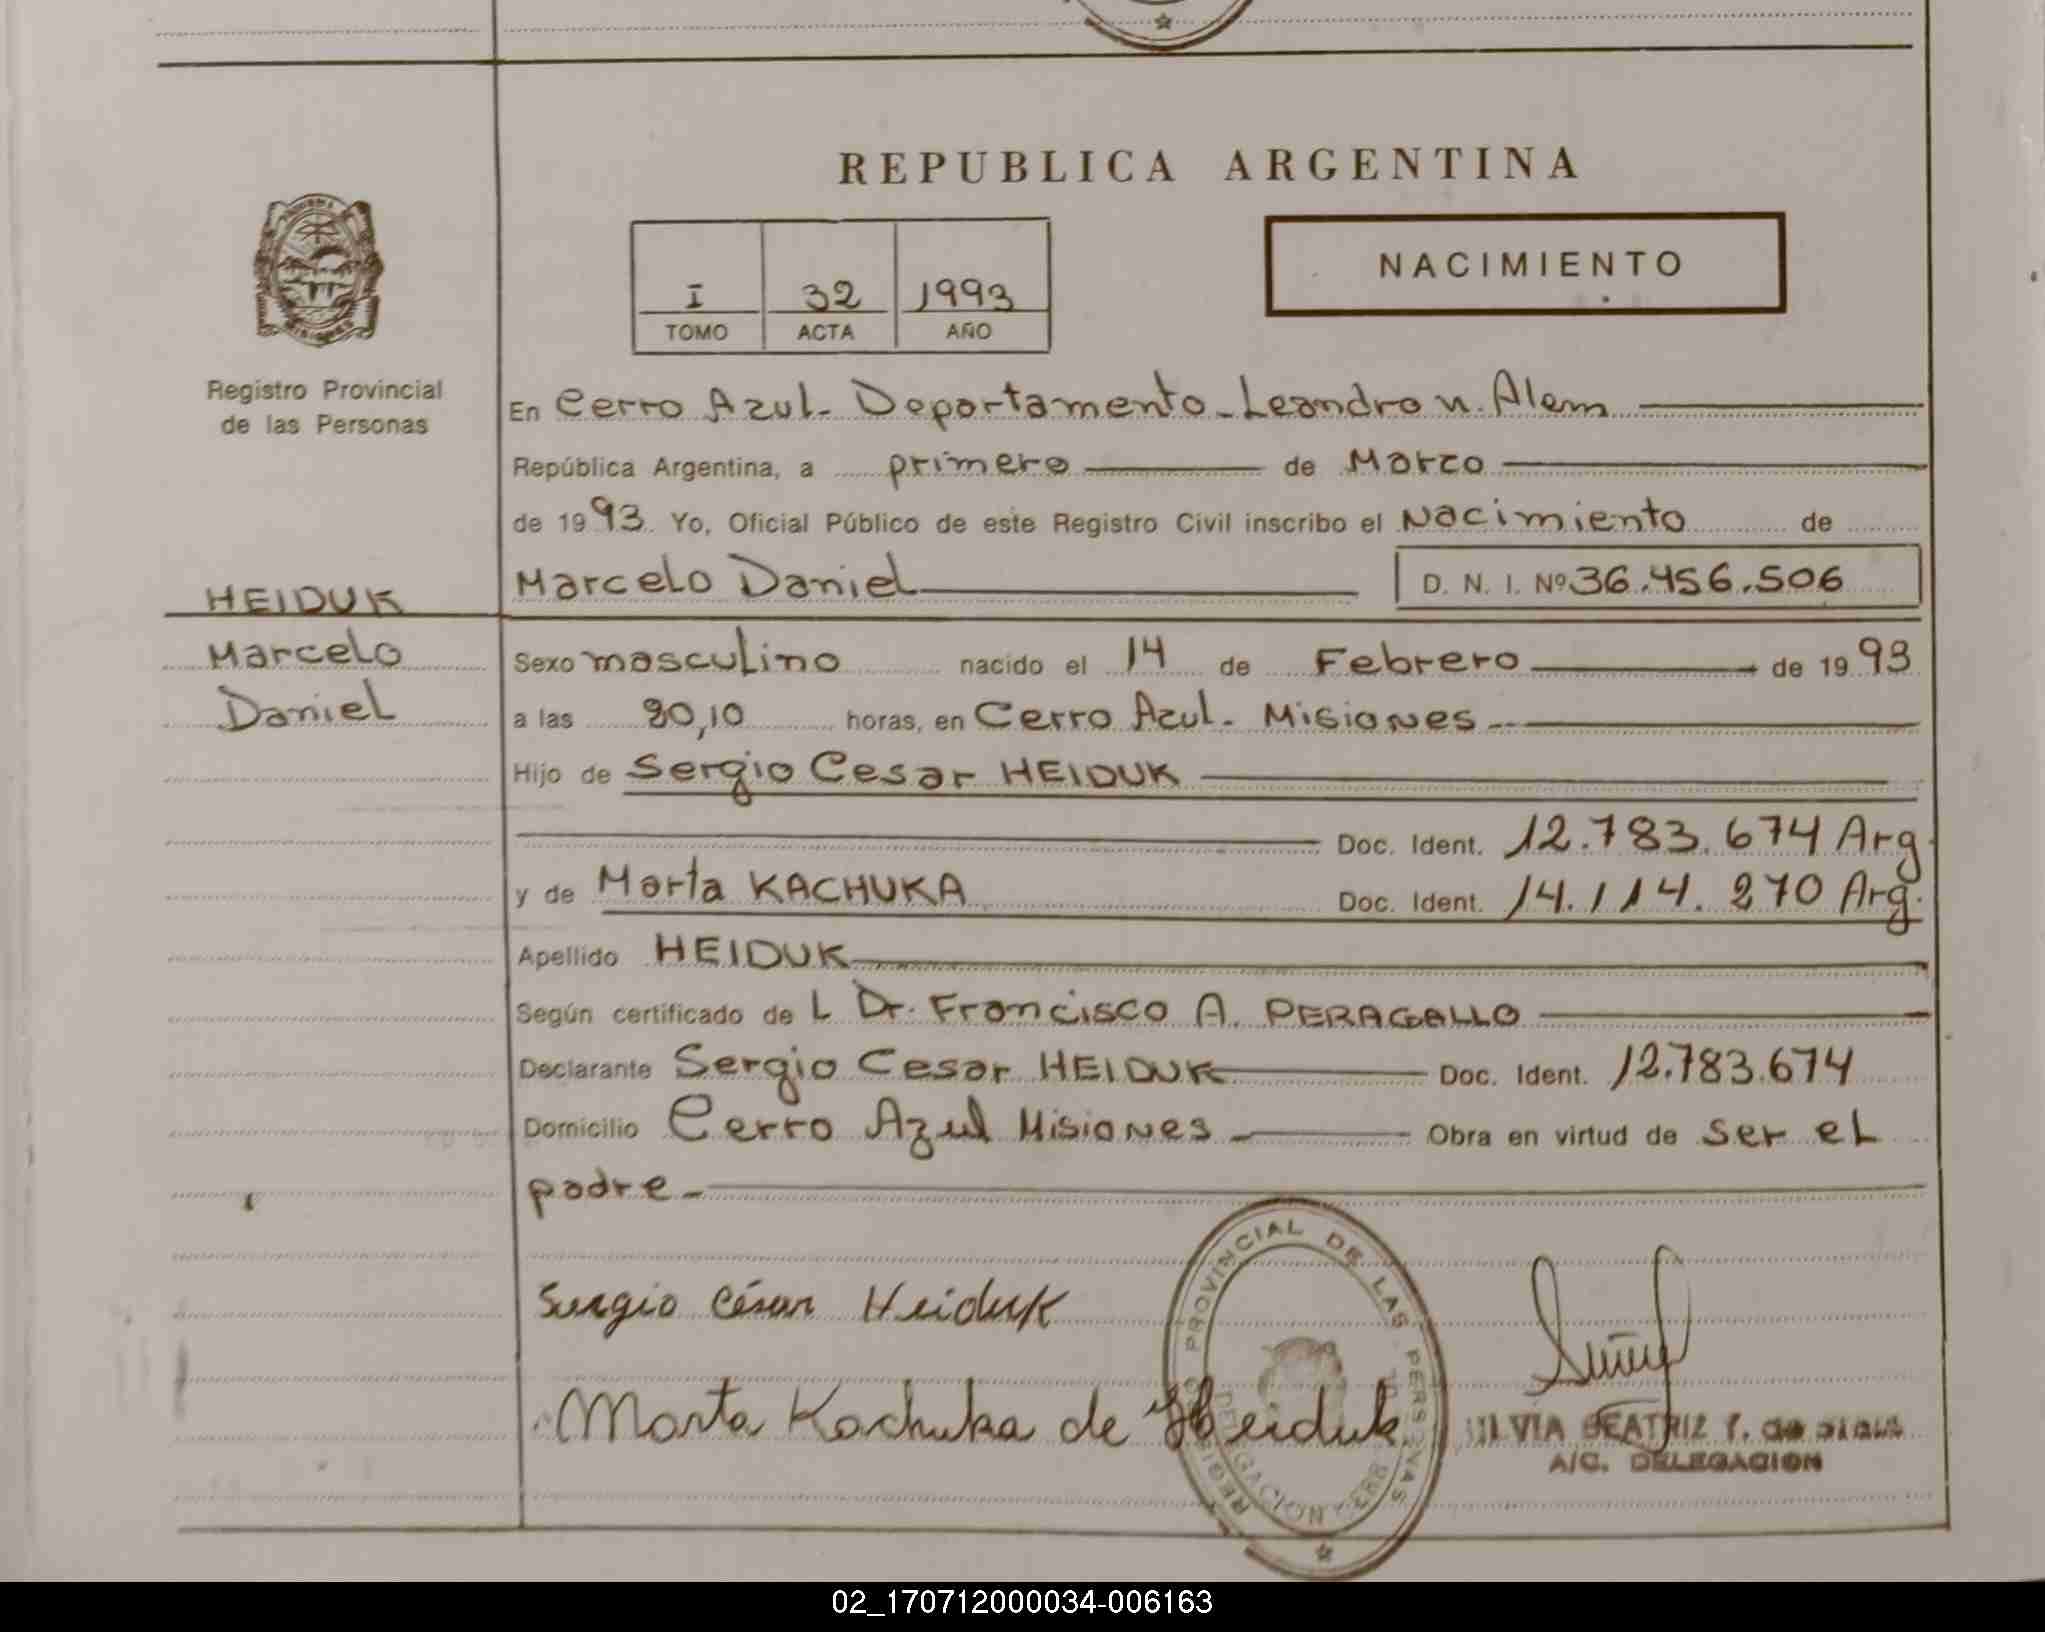 REPUBLICA ARGENTINA
NACIMIENTO
I 32 1993
TOMO ACTA AÑO
Registro Provincial
de las Personas
En Cerro Azul. Departamento - Leandro N. Alem
República Argentina, a primero de Marzo
de 1993. Yo, Oficial Público de este Registro Civil inscribo el Nacimiento de
HEIDUK
Marcelo
Daniel
Marcelo Daniel D. N. I. Nº 36.456.506
Sexo masculino nacido el 14 de Febrero de 1993
a las 20,10 horas, en Cerro Azul. Misiones
Hijo de Sergio Cesar HEIDUK
Doc. Ident. 12.783.674 Arg.
y de Marta KACHUKA Doc. Ident. 14.114.270 Arg.
Apellido HEIDUK
Según certificado de L Dr. Francisco A. PERAGALLO
Declarante Sergio Cesar HEIDUK Doc. Ident. 12.783.674
Domicilio Cerro Azul Misiones Obra en virtud de ser el
padre.
Sergio César Heiduk
Marta Kachuka de Heiduk
PROVINCIAL DE LAS PERSONAS
DELEGACION
BEATRIZ
A/C. DELEGACION
02_170712000034-006163